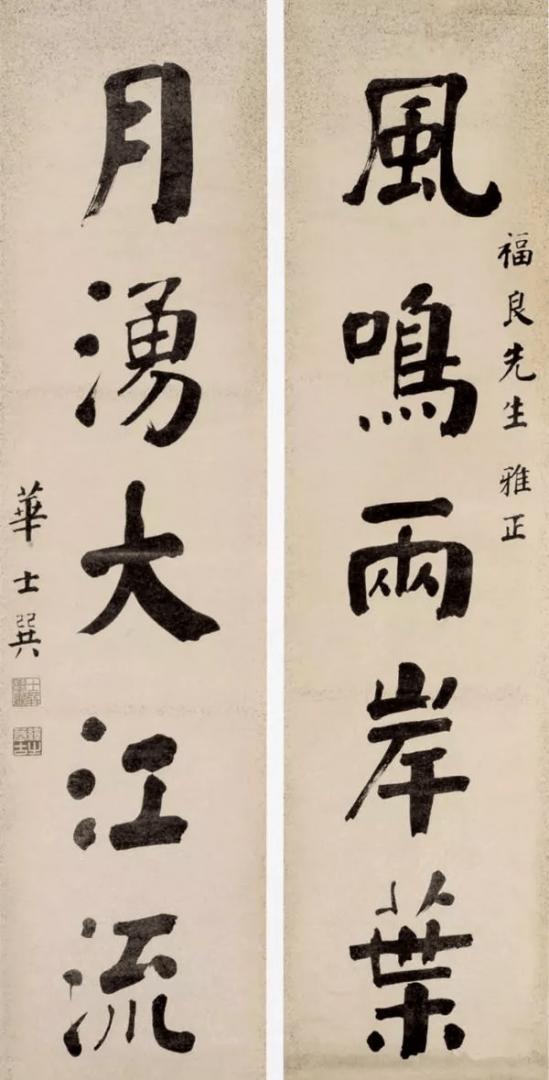 福良先生 雅正
風鳴兩岸葉
月湧大江流
華士巽